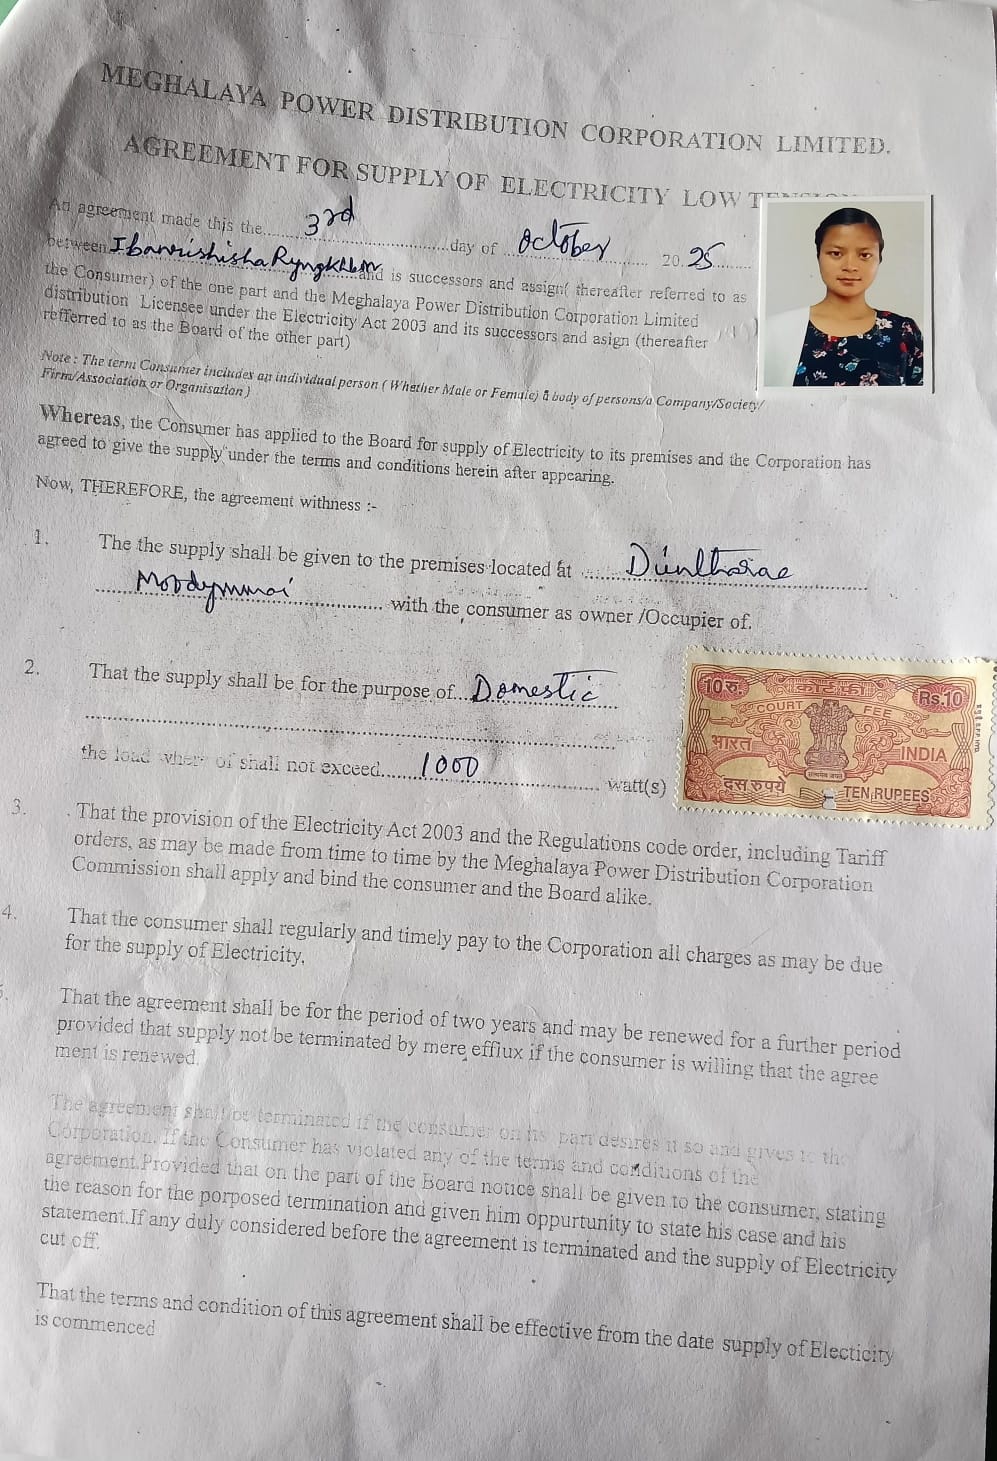 MEGHALAYA POWER DISTRIBUTION CORPORATION LIMITED.
AGREEMENT FOR SUPPLY OF ELECTRICITY LOW TENSION
An agreement made this the 3rd day of October 20.25
between Ibanrishisha Ryngkhlem and is successors and assign( thereafter referred to as
the Consumer) of the one part and the Meghalaya Power Distribution Corporation Limited
distribution Licensee under the Electricity Act 2003 and its successors and asign (thereafter
refferred to as the Board of the other part)
Note : The term Consumer includes an individual person ( Whether Male or Female) a body of persons/a Company/Society/
Firm/Association or Organisation )
Whereas, the Consumer has applied to the Board for supply of Electricity to its premises and the Corporation has
agreed to give the supply under the terms and conditions herein after appearing.
Now, THEREFORE, the agreement withness :-
1. The the supply shall be given to the premises located at
with the consumer as owner /Occupier of.
2. That the supply shall be for the purpose of Domestic
the load wher of shall not exceed 1000 watt(s)
10 रु. कोर्ट फ़ी Rs.10
COURT FEE
भारत INDIA
सत्यमेव जयते
दस रुपये TEN RUPEES
3. That the provision of the Electricity Act 2003 and the Regulations code order, including Tariff
orders, as may be made from time to time by the Meghalaya Power Distribution Corporation
Commission shall apply and bind the consumer and the Board alike.
4. That the consumer shall regularly and timely pay to the Corporation all charges as may be due
for the supply of Electricity.
That the agreement shall be for the period of two years and may be renewed for a further period
provided that supply not be terminated by mere efflux if the consumer is willing that the agree
ment is renewed.
The agreement shall be terminated if the consumer on its part desires it so and gives to the
Corporation. If the Consumer has violated any of the terms and conditions of the
agreement.Provided that on the part of the Board notice shall be given to the consumer, stating
the reason for the porposed termination and given him oppurtunity to state his case and his
statement.If any duly considered before the agreement is terminated and the supply of Electricity
cut off.
That the terms and condition of this agreement shall be effective from the date supply of Electicity
is commenced